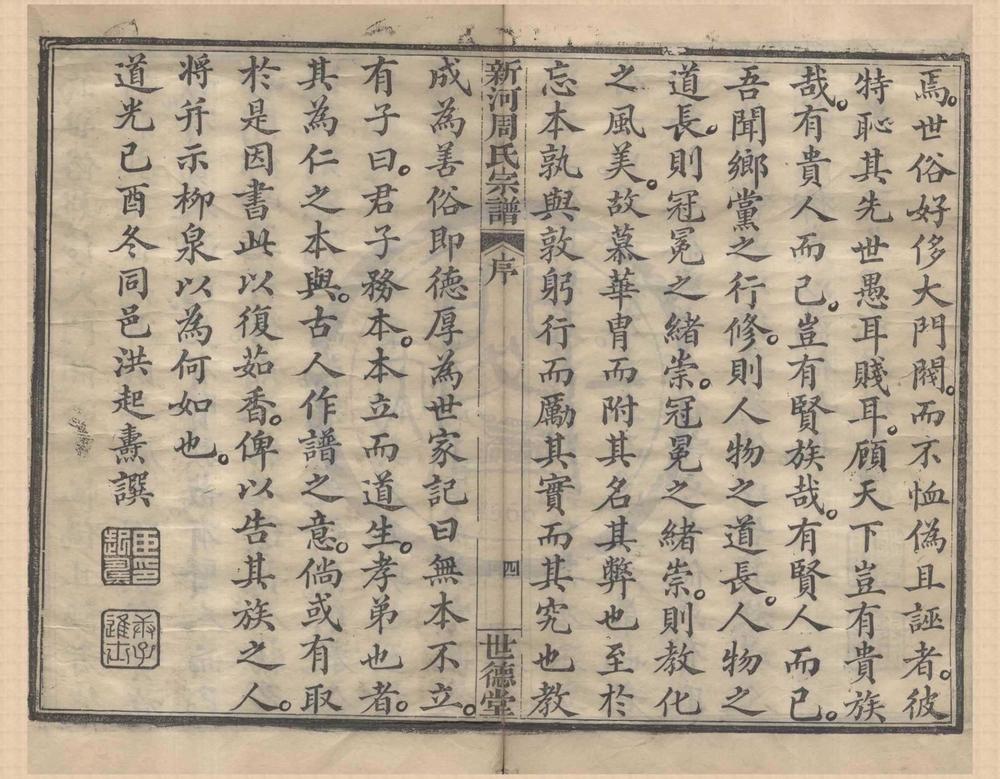 焉。世俗好侈大門閥。而不恤偽且誣者。彼
特恥其先世愚耳賤耳。顧天下豈有貴族
哉。有貴人而已。豈有賢族哉。有賢人而已。
吾聞鄉黨之行修。則人物之道長。人物之
道長。則冠冕之緒崇。冠冕之緒崇。則教化
之風美。故慕華胄而附其名其弊也至於
忘本孰與敦躬行而勵其實而其究也教
新河周氏宗譜
序
四
世德堂
成為善俗即德厚為世家記曰無本不立。
有子曰。君子務本。本立而道生。孝弟也者。
其為仁之本與。古人作譜之意。倘或有取
於是因書此以復茹香。俾以告其族之人。
將并示柳泉以為何如也。
道光己酉冬同邑洪起燾譔